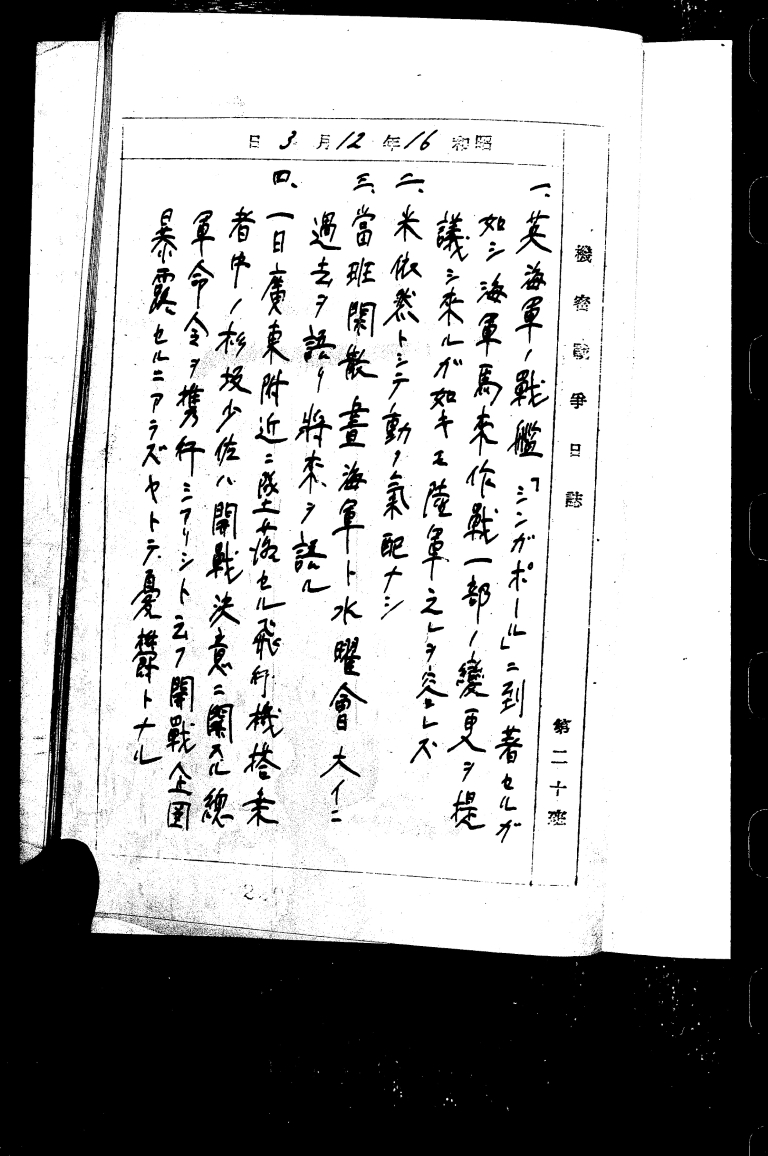 機密戰爭日誌 第二十班
昭和16年12月3日
一、英海軍ノ戰艦「シンガポール」ニ到著セルガ
如シ海軍馬來作戰一部ノ變更ヲ提
議シ來ルガ如キモ陸軍之レヲ容レズ
二、米依然トシテ動ク氣配ナシ
三、當班閑散晝海軍ト水曜會大イニ
過去ヲ語リ將來ヲ語ル
四、一日廣東附近ニ墜落セル飛行機搭乘
者中ノ杉坂少佐ハ開戰決意ニ關スル總
軍命令ヲ携行シアリシト云フ開戰企圖
暴露セルニアラズヤトテ憂欝トナル